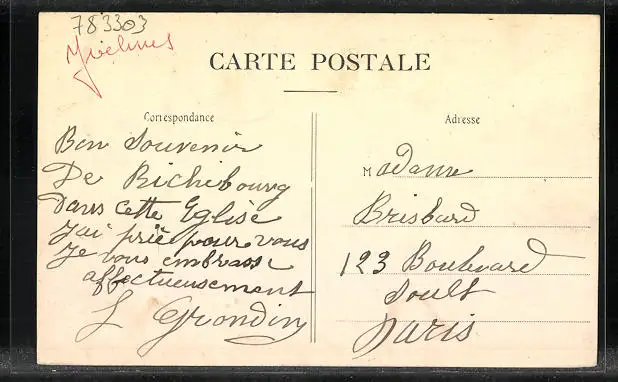 783303
Yvelines
CARTE POSTALE
Correspondance
Bon Souvenir
De Richebourg
Dans cette Eglise
j'ai prié pour vous
Je vous embrasse
affectueusement
L Grondin
Adresse
Madame
Brisbard
123 Boulevard
Soult
Paris